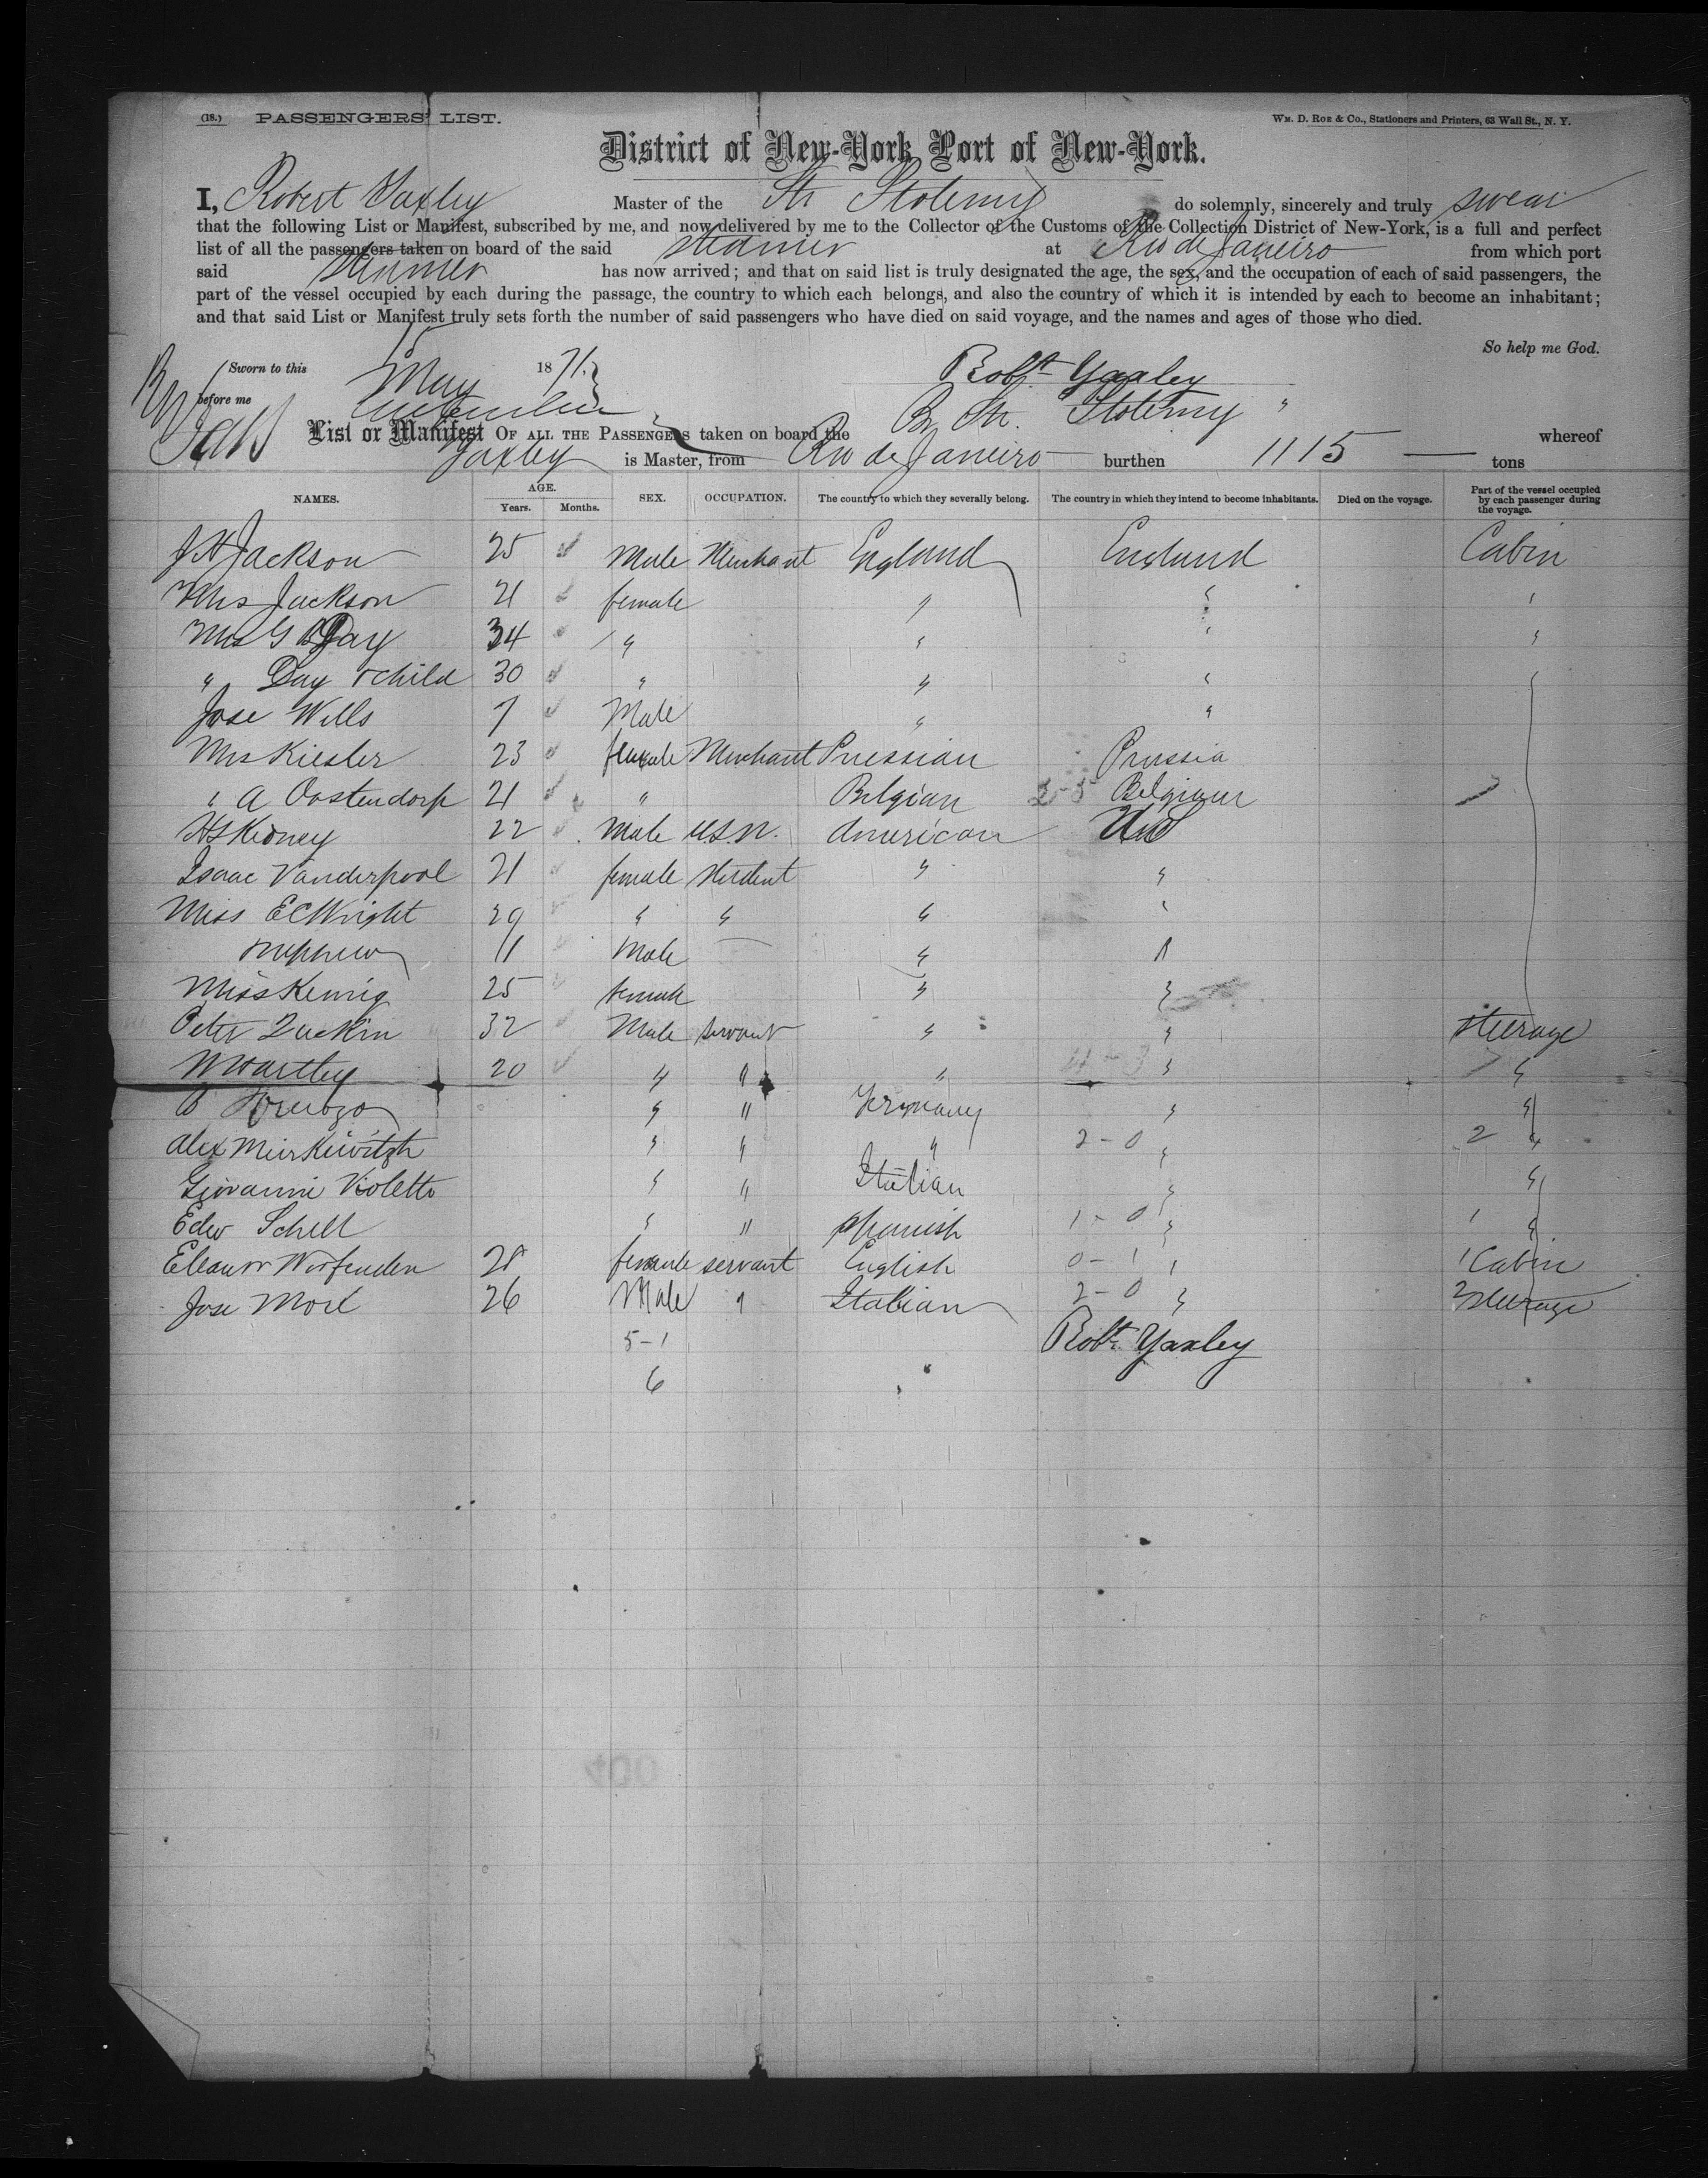 (18.) PASSENGERS' LIST. WM. D. ROE & CO., Stationers and Printers, 63 Wall St., N. Y.
District of New-York Port of New-York.
I, Robert Yaxley Master of the Str Stolemy do solemnly, sincerely and truly swear
that the following List or Manifest, subscribed by me, and now delivered by me to the Collector of the Customs of the Collection District of New-York, is a full and perfect
list of all the passengers taken on board of the said steamer at Rio de Janeiro from which port
said steamer has now arrived; and that on said list is truly designated the age, the sex, and the occupation of each of said passengers, the
part of the vessel occupied by each during the passage, the country to which each belongs, and also the country of which it is intended by each to become an inhabitant;
and that said List or Manifest truly sets forth the number of said passengers who have died on said voyage, and the names and ages of those who died.
So help me God.
Sworn to this 15 May 1871. Robt. Yaxley
before me
List or Manifest OF ALL THE PASSENGERS taken on board the Br Str. Stolemy " whereof
Yaxley is Master, from Rio de Janeiro burthen 1115 tons
NAMES. AGE. Years. Months. SEX. OCCUPATION. The country to which they severally belong. The country in which they intend to become inhabitants. Died on the voyage. Part of the vessel occupied by each passenger during the voyage.
J H Jackson 25 Male Merchant England England Cabin
Mrs Jackson 21 female " " "
Mrs G Day 34 " " " "
" Day & child 30 " " " "
Jose Wills 7 Male " "
Mrs Kiesler 23 female Merchant Prussian Prussia
" A Oostendorp 21 " Belgian Belgium
HS Kedney 22 Male U.S.N. American US
Isaac Vanderpool 21 female student " "
Miss EC Wright 29 " " " "
nephew 11 Male " "
Miss Kemig 25 female " "
Peter Quekin 32 Male servant " " Steerage
W Hartley 20 " " " 4-3 " "
" " Germany " "
Alex Meirkewitzh " " " 2-0 " 2 "
Giovanni Violetto " " Italian " "
Edw Schell " " Spanish 1-0 " 1 "
Eleanor Worfenden 28 female servant English 0-1 " 1 Cabin
Jose Morl 26 Male " Italian 2-0 " 2 Steerage
5-1 Robt. Yaxley
6